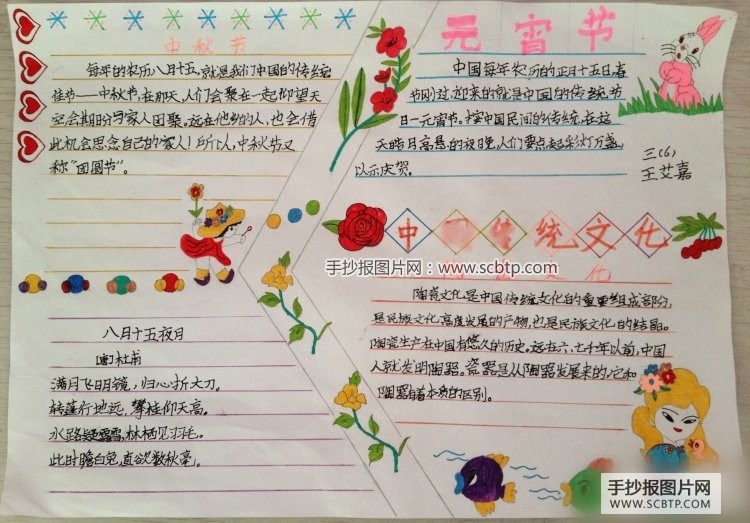 中秋节
每年的农历八月十五，就是我们中国的传统
佳节——中秋节，在那天，人们会聚在一起仰望天
空会期盼与家人团聚。远在他乡的人，也会借
此机会思念自己的家人！所以，中秋节又
称“团圆节”。
八月十五夜月
[唐]杜甫
满月飞明镜，归心折大刀。
转蓬行地远，攀桂仰天高。
水路疑霜雪，林栖见羽毛。
此时瞻白兔，直欲数秋毫。
元宵节
中国每年农历的正月十五日，春
节刚过，迎来的就是中国的传统节
日—元宵节。按中国民间的传统，在这
天皓月高悬的夜晚，人们要点起彩灯万盏，
以示庆贺。
三(6)
王艾嘉
中国传统文化
手抄报图片网：www.scbtp.com
文化
陶瓷文化是中国传统文化的重要组成部分，
是民族文化高度发展的产物，也是民族文化的结晶。
陶瓷生产在中国有悠久的历史。远在六、七千年以前，中国
人就发明陶器。瓷器是从陶器发展来的，它和
陶器有着本质的区别。
手抄报图片网
WWW.SCBTP.COM